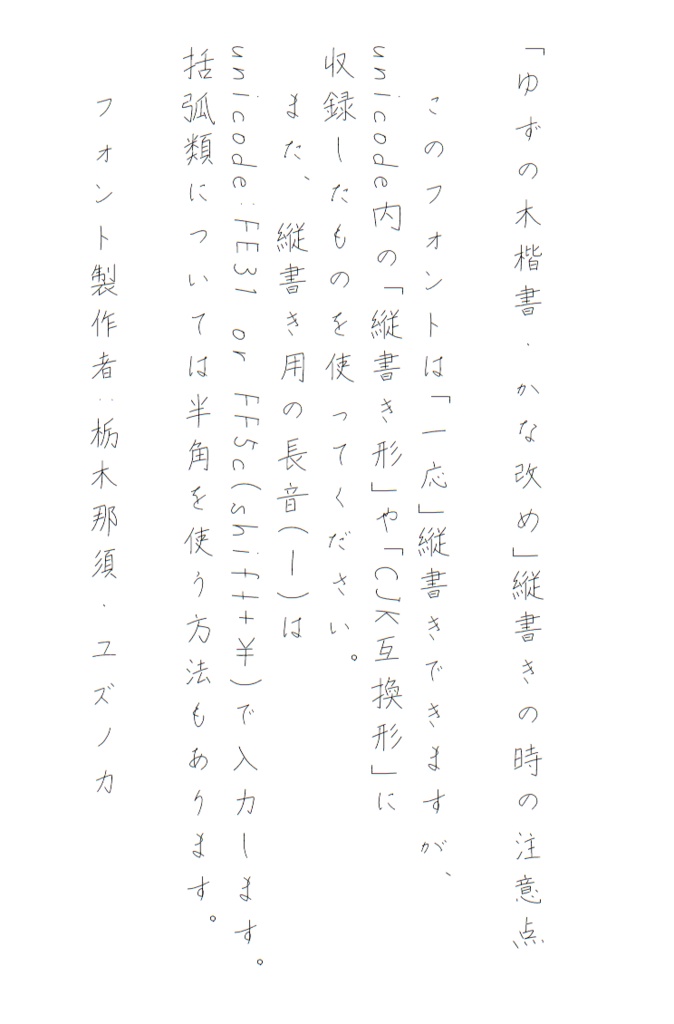 「ゆずの木楷書・かな改め」縦書きの時の注意点
このフォントは「一応」縦書きできますが、
unicode内の「縦書き形」や「CJK互換形」に
収録したものを使ってください。
また、縦書き用の長音(︱)は
unicode:FE31 or FF5c(shift+￥)で入力します。
括弧類については半角を使う方法もあります。
フォント製作者:栃木那須・ユズノカ